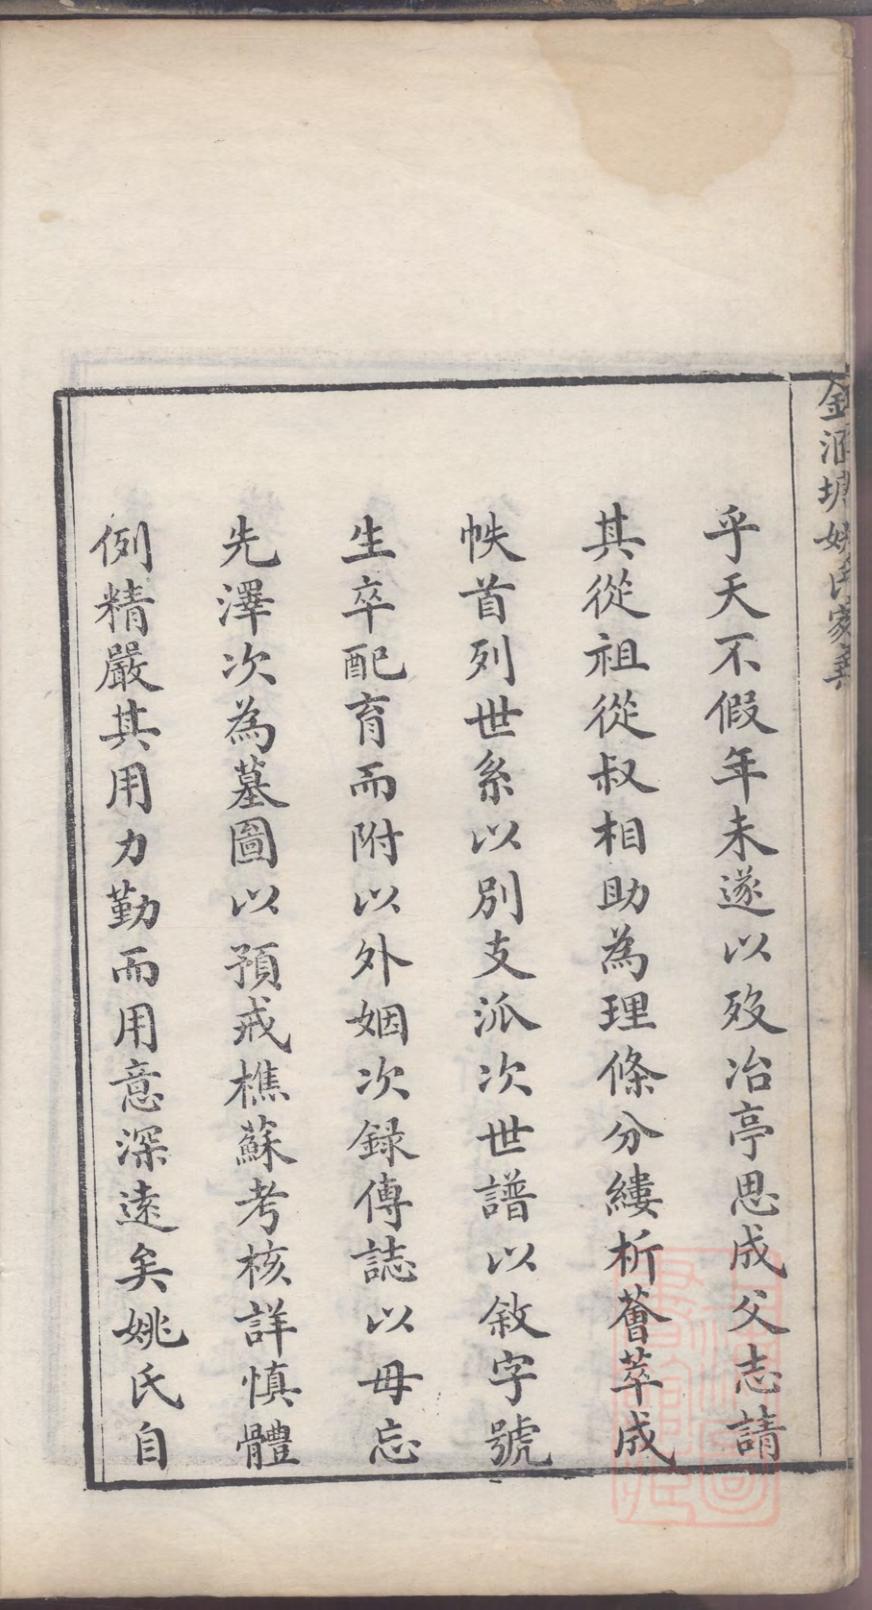 金涵塘姚氏家乘
乎天不假年未遂以歿冶亭思成父志請
其從祖從叔相助為理條分縷析薈萃成
帙首列世系以別支派次世譜以敘字號
生卒配育而附以外姻次録傳誌以毋忘
先澤次為墓圖以預戒樵蘇考核詳慎體
例精嚴其用力勤而用意深遠矣姚氏自